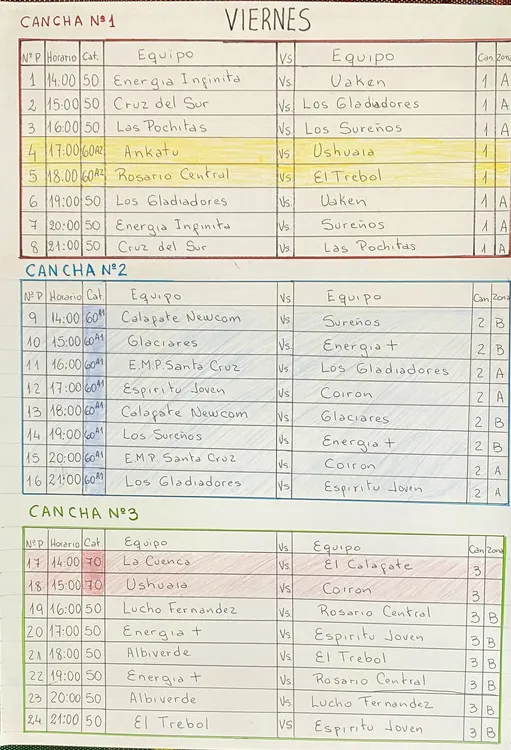 CANCHA Nº1
VIERNES
NºP Horario Cat. Equipo Vs Equipo Can Zona
1 14:00 50 Energia Inginita Vs. Uaken 1 A
2 15:00 50 Cruz del Sur Vs Los Gladadores 1 A
3 16:00 50 Las Pochitas Vs Los Sureños 1 A
4 17:00 60A2 Ankatu Vs Ushuaia 1
5 18:00 60A2 Rosario Central Vs El Trebol 1
6 19:00 50 Los Gladiadores Vs. Uaken 1 A
7 20:00 50 Energia Inginita Vs Sureños 1 A
8 21:00 50 Cruz del Sur Vs Las Pochitas 1 A
CANCHA Nº2
NºP Horario Cat. Equipo Vs Equipo Can Zona
9 14:00 60A1 Calagate Newcom Vs Sureños 2 B
10 15:00 60A1 Glaciares Vs. Energia + 2 B
11 16:00 60A1 E.M.P. Santa Cruz Vs Los Gladiadores 2 A
12 17:00 60A1 Espiritu Joven Vs Coiron 2 A
13 18:00 60A1 Calagate Newcom Vs. Glaciares 2 B
14 19:00 60A1 Los Sureños Vs. Energia + 2 B
15 20:00 60A1 E.M.P. Santa Cruz Vs. Coiron 2 A
16 21:00 60A1 Los Gladiadores Vs Espiritu Joven 2 A
CANCHA Nº3
NºP Horario Cat Equipo Vs. Equipo Can Zona
17 14:00 70 La Cuenca Vs El Calagate 3
18 15:00 70 Ushuaia Vs Coiron 3
19 16:00 50 Lucho Fernandez Vs Rosario Central 3 B
20 17:00 50 Energia + Vs Espiritu Joven 3 B
21 18:00 50 Albiverde Vs El Trebol 3 B
22 19:00 50 Energia + Vs Rosario Central 3 B
23 20:00 50 Albiverde Vs Lucho Fernandez 3 B
24 21:00 50 El Trebol Vs Espiritu Joven 3 B